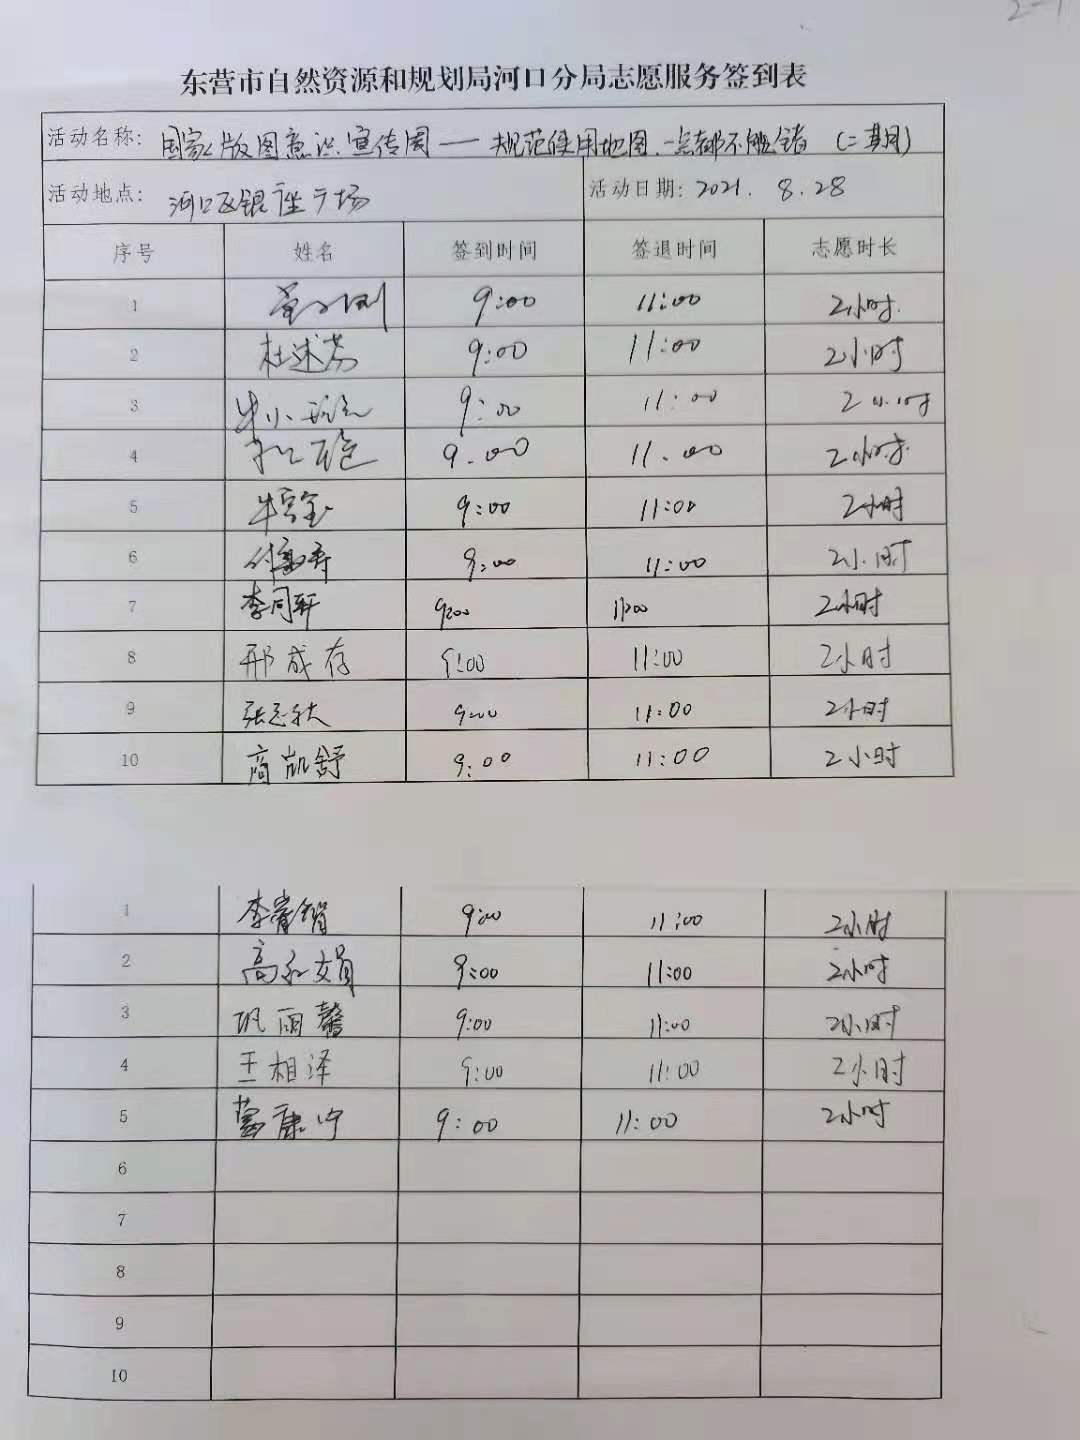 东营市自然资源和规划局河口分局志愿服务签到表
活动名称: 国家版图意识宣传周——规范使用地图,一点都不能错 (二期)
活动地点: 河口区银座广场 活动日期: 2021. 8.28
序号 姓名 签到时间 签退时间 志愿时长
1 9:00 11:00 2小时.
2 杜述芬 9:00 11:00 2小时
3 牛小 9:00 11:00 2小时
4 9.00 11.00 2小时.
5 牛 9:00 11:00 2小时
6 付 9:00 11:00 2小时
7 李同轩 9:00 11:00 2小时
8 邢成存 9:00 11:00 2小时
9 张志秋 9:00 11:00 2小时
10 商凯舒 9:00 11:00 2小时
1 李 9:00 11:00 2小时
2 高永娟 9:00 11:00 2小时
3 巩雨馨 9:00 11:00 2小时
4 王相泽 9:00 11:00 2小时
5 康宁 9:00 11:00 2小时
6
7
8
9
10